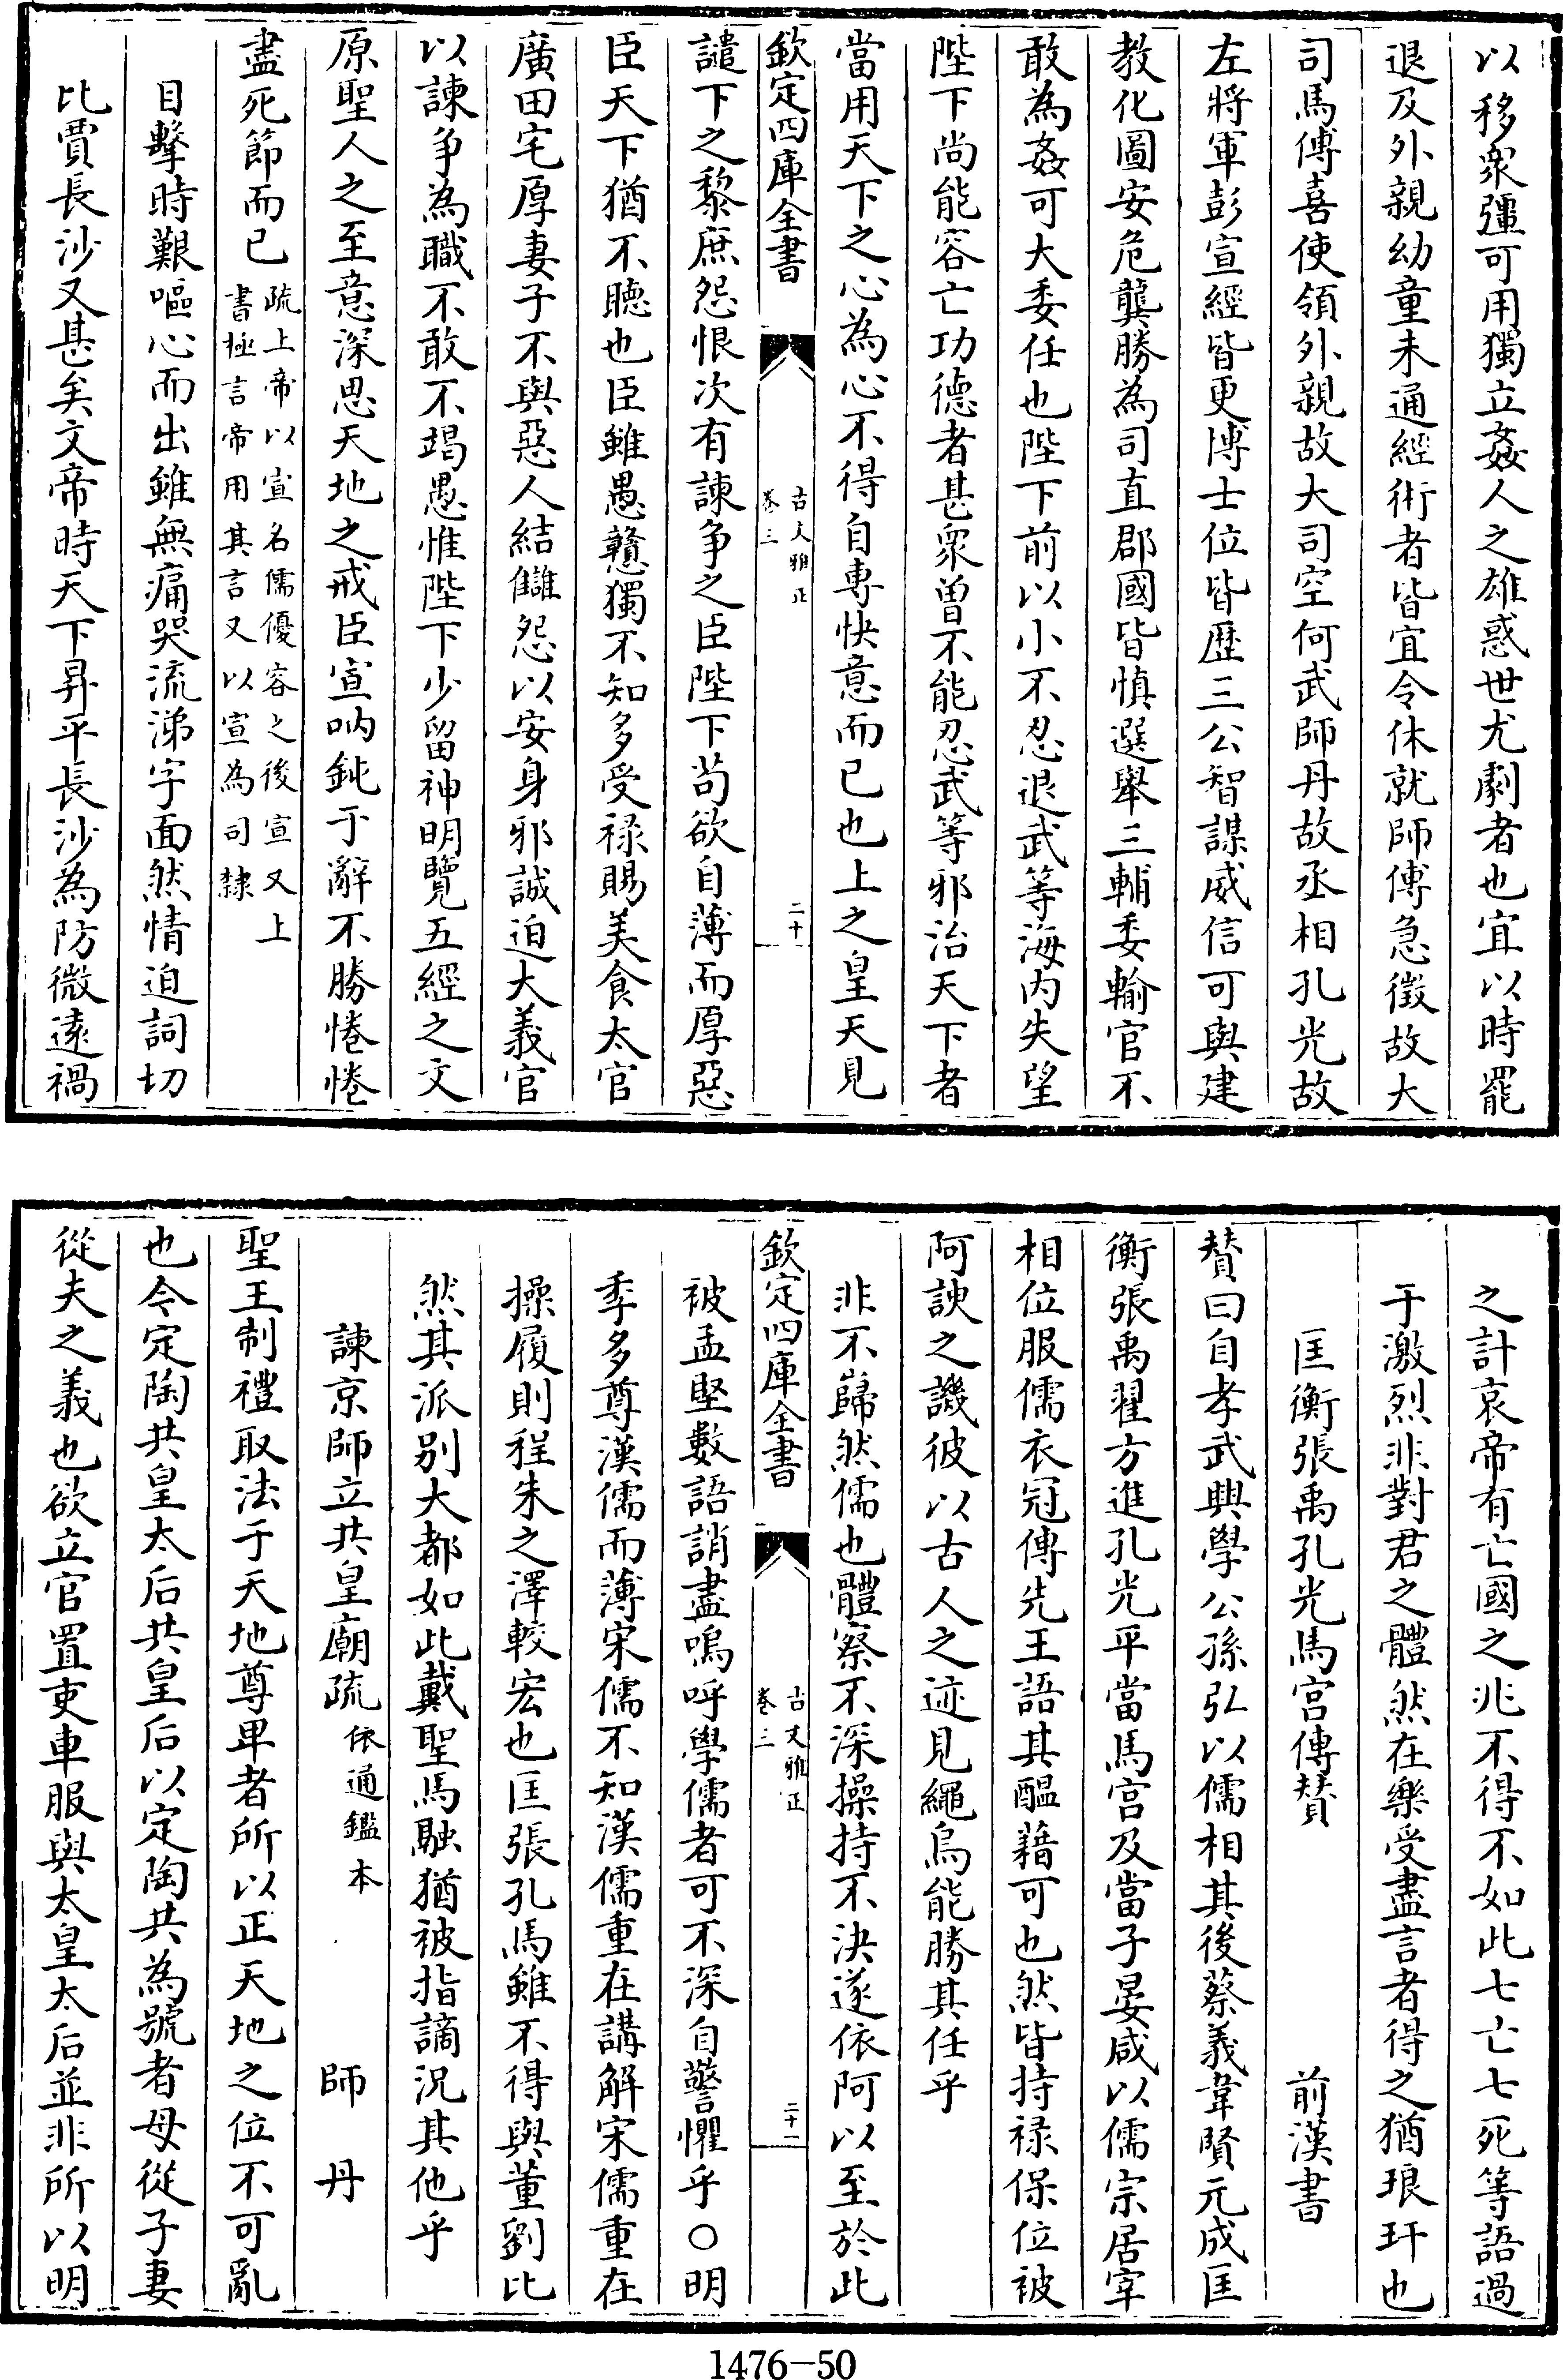 以移衆彊可用獨立姦人之雄惑世尤劇者也宜以時罷
退及外親幼童未通經術者皆宜令休就師傅急徵故大
司馬傅喜使領外親故大司空何武師丹故丞相孔光故
左將軍彭宣經皆更博士位皆歷三公智謀威信可與建
教化圖安危龔勝為司直郡國皆慎選舉三輔委輸官不
敢為姦可大委任也陛下前以小不忍退武等海内失望
陛下尚能容亡功德者甚衆曾不能忍武等邪治天下者
當用天下之心為心不得自専快意而已也上之皇天見
欽定四庫全書
古文雅正
卷三
二十
譴下之黎庶怨恨次有諫争之臣陛下苟欲自薄而厚惡
臣天下猶不聴也臣雖愚戇獨不知多受禄賜美食太官
廣田宅厚妻子不與惡人結讎怨以安身邪誠迫大義官
以諫争為職不敢不竭愚惟陛下少留神明覽五經之文
原聖人之至意深思天地之戒臣宣呐鈍于辭不勝惓惓
盡死節而已疏上帝以宣名儒優容之後宣又上
書極言帝用其言又以宣為司隸
目擊時艱嘔心而出雖無痛哭流涕字面然情迫詞切
比賈長沙又甚矣文帝時天下昇平長沙為防微逺禍
之計哀帝有亡國之兆不得不如此七亡七死等語過
于激烈非對君之體然在樂受盡言者得之猶琅玕也
匡衡張禹孔光馬宫傳賛 前漢書
賛曰自孝武興學公孫弘以儒相其後蔡義韋賢元成匡
衡張禹翟方進孔光平當馬宫及當子晏咸以儒宗居宰
相位服儒衣冠傳先王語其醖藉可也然皆持禄保位被
阿諛之譏彼以古人之迹見繩烏能勝其任乎
非不歸然儒也體察不深操持不決遂依阿以至於此
欽定四庫全書
古文雅正
卷三
二十一
被孟堅數語誚盡嗚呼學儒者可不深自警懼乎○明
季多尊漢儒而薄宋儒不知漢儒重在講解宋儒重在
操履則程朱之澤較宏也匡張孔馬雖不得與董劉比
然其派别大都如此戴聖馬融猶被指謫況其他乎
諫京師立共皇廟疏依通鑑本 師丹
聖王制禮取法于天地尊卑者所以正天地之位不可亂
也令定陶共皇太后共皇后以定陶共為號者母從子妻
從夫之義也欲立官置吏車服與太皇太后並非所以明
1476-50